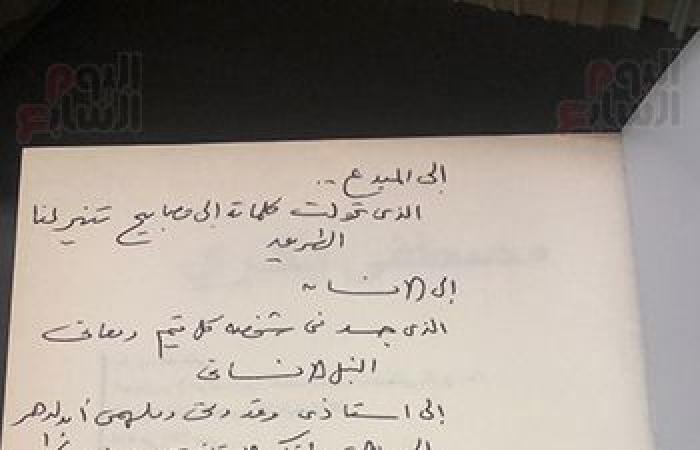 اليوم السابع
اليوم السابع
إلى المبدع ..
الذى تحولت كلماته إلى مصابيح تنير لنا
الطريق
إلى الإنسان
الذى جسد فى شخصه كل قيم ومعانى
النبل الإنسانى
إلى استاذى وقدوتى وملهمى أبد الدهر
إلى